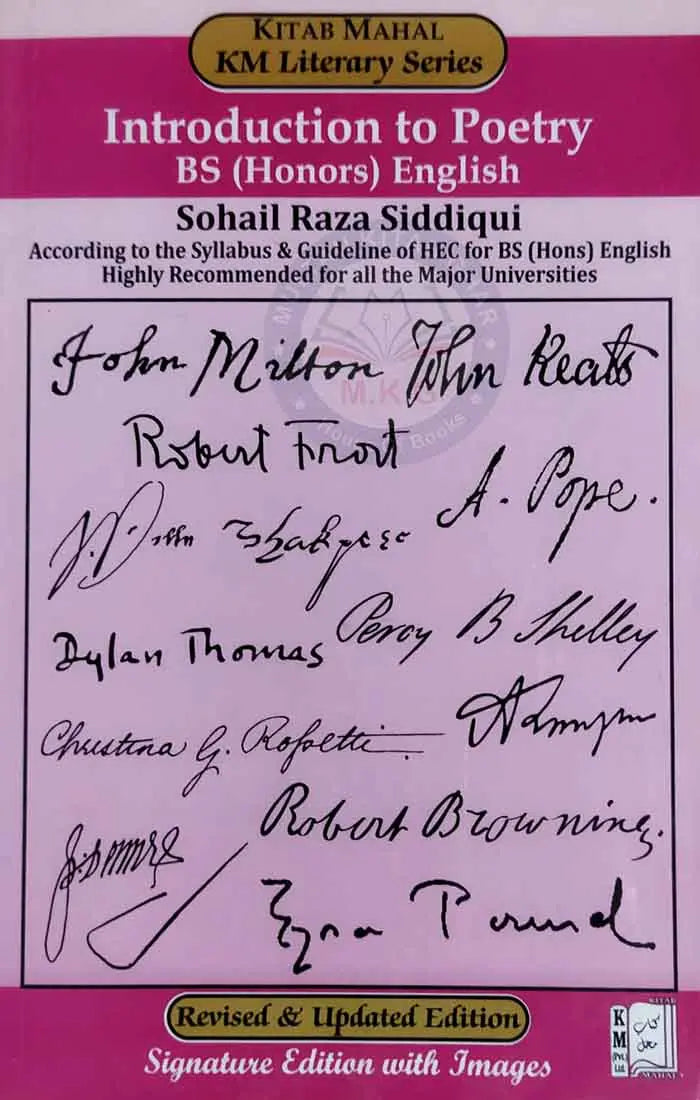 KITAB MAHAL
KM Literary Series
Introduction to Poetry
BS (Honors) English
Sohail Raza Siddiqui
According to the Syllabus & Guideline of HEC for BS (Hons) English
Highly Recommended for all the Major Universities
M.K.G
House of Books
John Milton John Keats
Robert Frost
A. Pope.
Dylan Thomas Percy B Shelley
Christina G. Rossetti
Robert Browning.
Ezra Pound
Revised & Updated Edition
Signature Edition with Images
KITAB
K
M
(Pvt.)
Ltd.
کتاب
محل
MAHAL